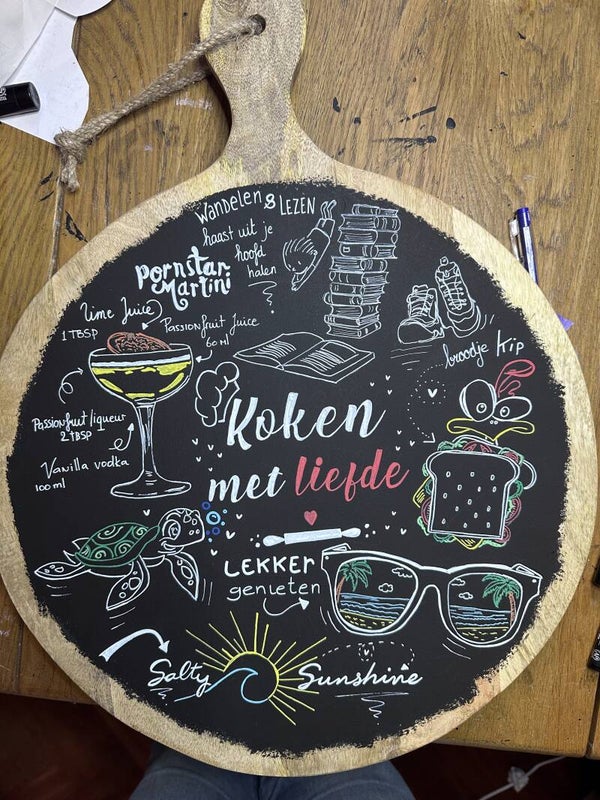 Wandelen & LEZEN
haast uit je
hoofd
halen
Pornstar
Martini
Lime Juice
1 TBSP
Passionfruit Juice
60 ml
Passionfruit liqueur
2 TBSP
Vanilla vodka
100 ml
broodje Kip
Koken
met liefde
LEKKER
genieten
Salty Sunshine